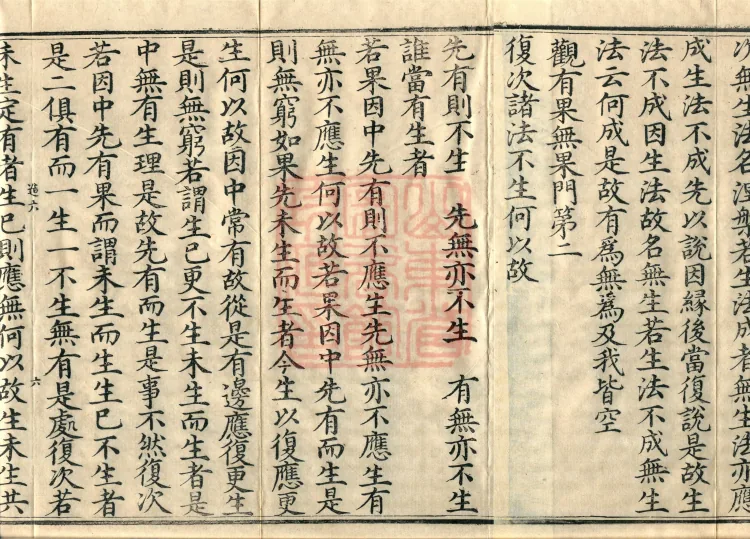 次無生法名涅槃若生法成者無生法亦應
成生法不成先以說因緣後當復說是故生
法不成因生法故名無生若生法不成無生
法云何成是故有爲無爲及我皆空
觀有果無果門第二
復次諸法不生何以故
先有則不生 先無亦不生 有無亦不生
誰當有生者
若果因中先有則不應生先無亦不應生有
無亦不應生何以故若果因中先有而生是
則無窮如果先未生而生者今生以復應更
生何以故因中常有故從是有邊應復更生
是則無窮若謂生已更不生未生而生者是
中無有生理是故先有而生是事不然復次
若因中先有果而謂未生而生生已不生者
是二俱有而一生一不生無有是處復次若
六
未生定有者生已則應無何以故生未生共